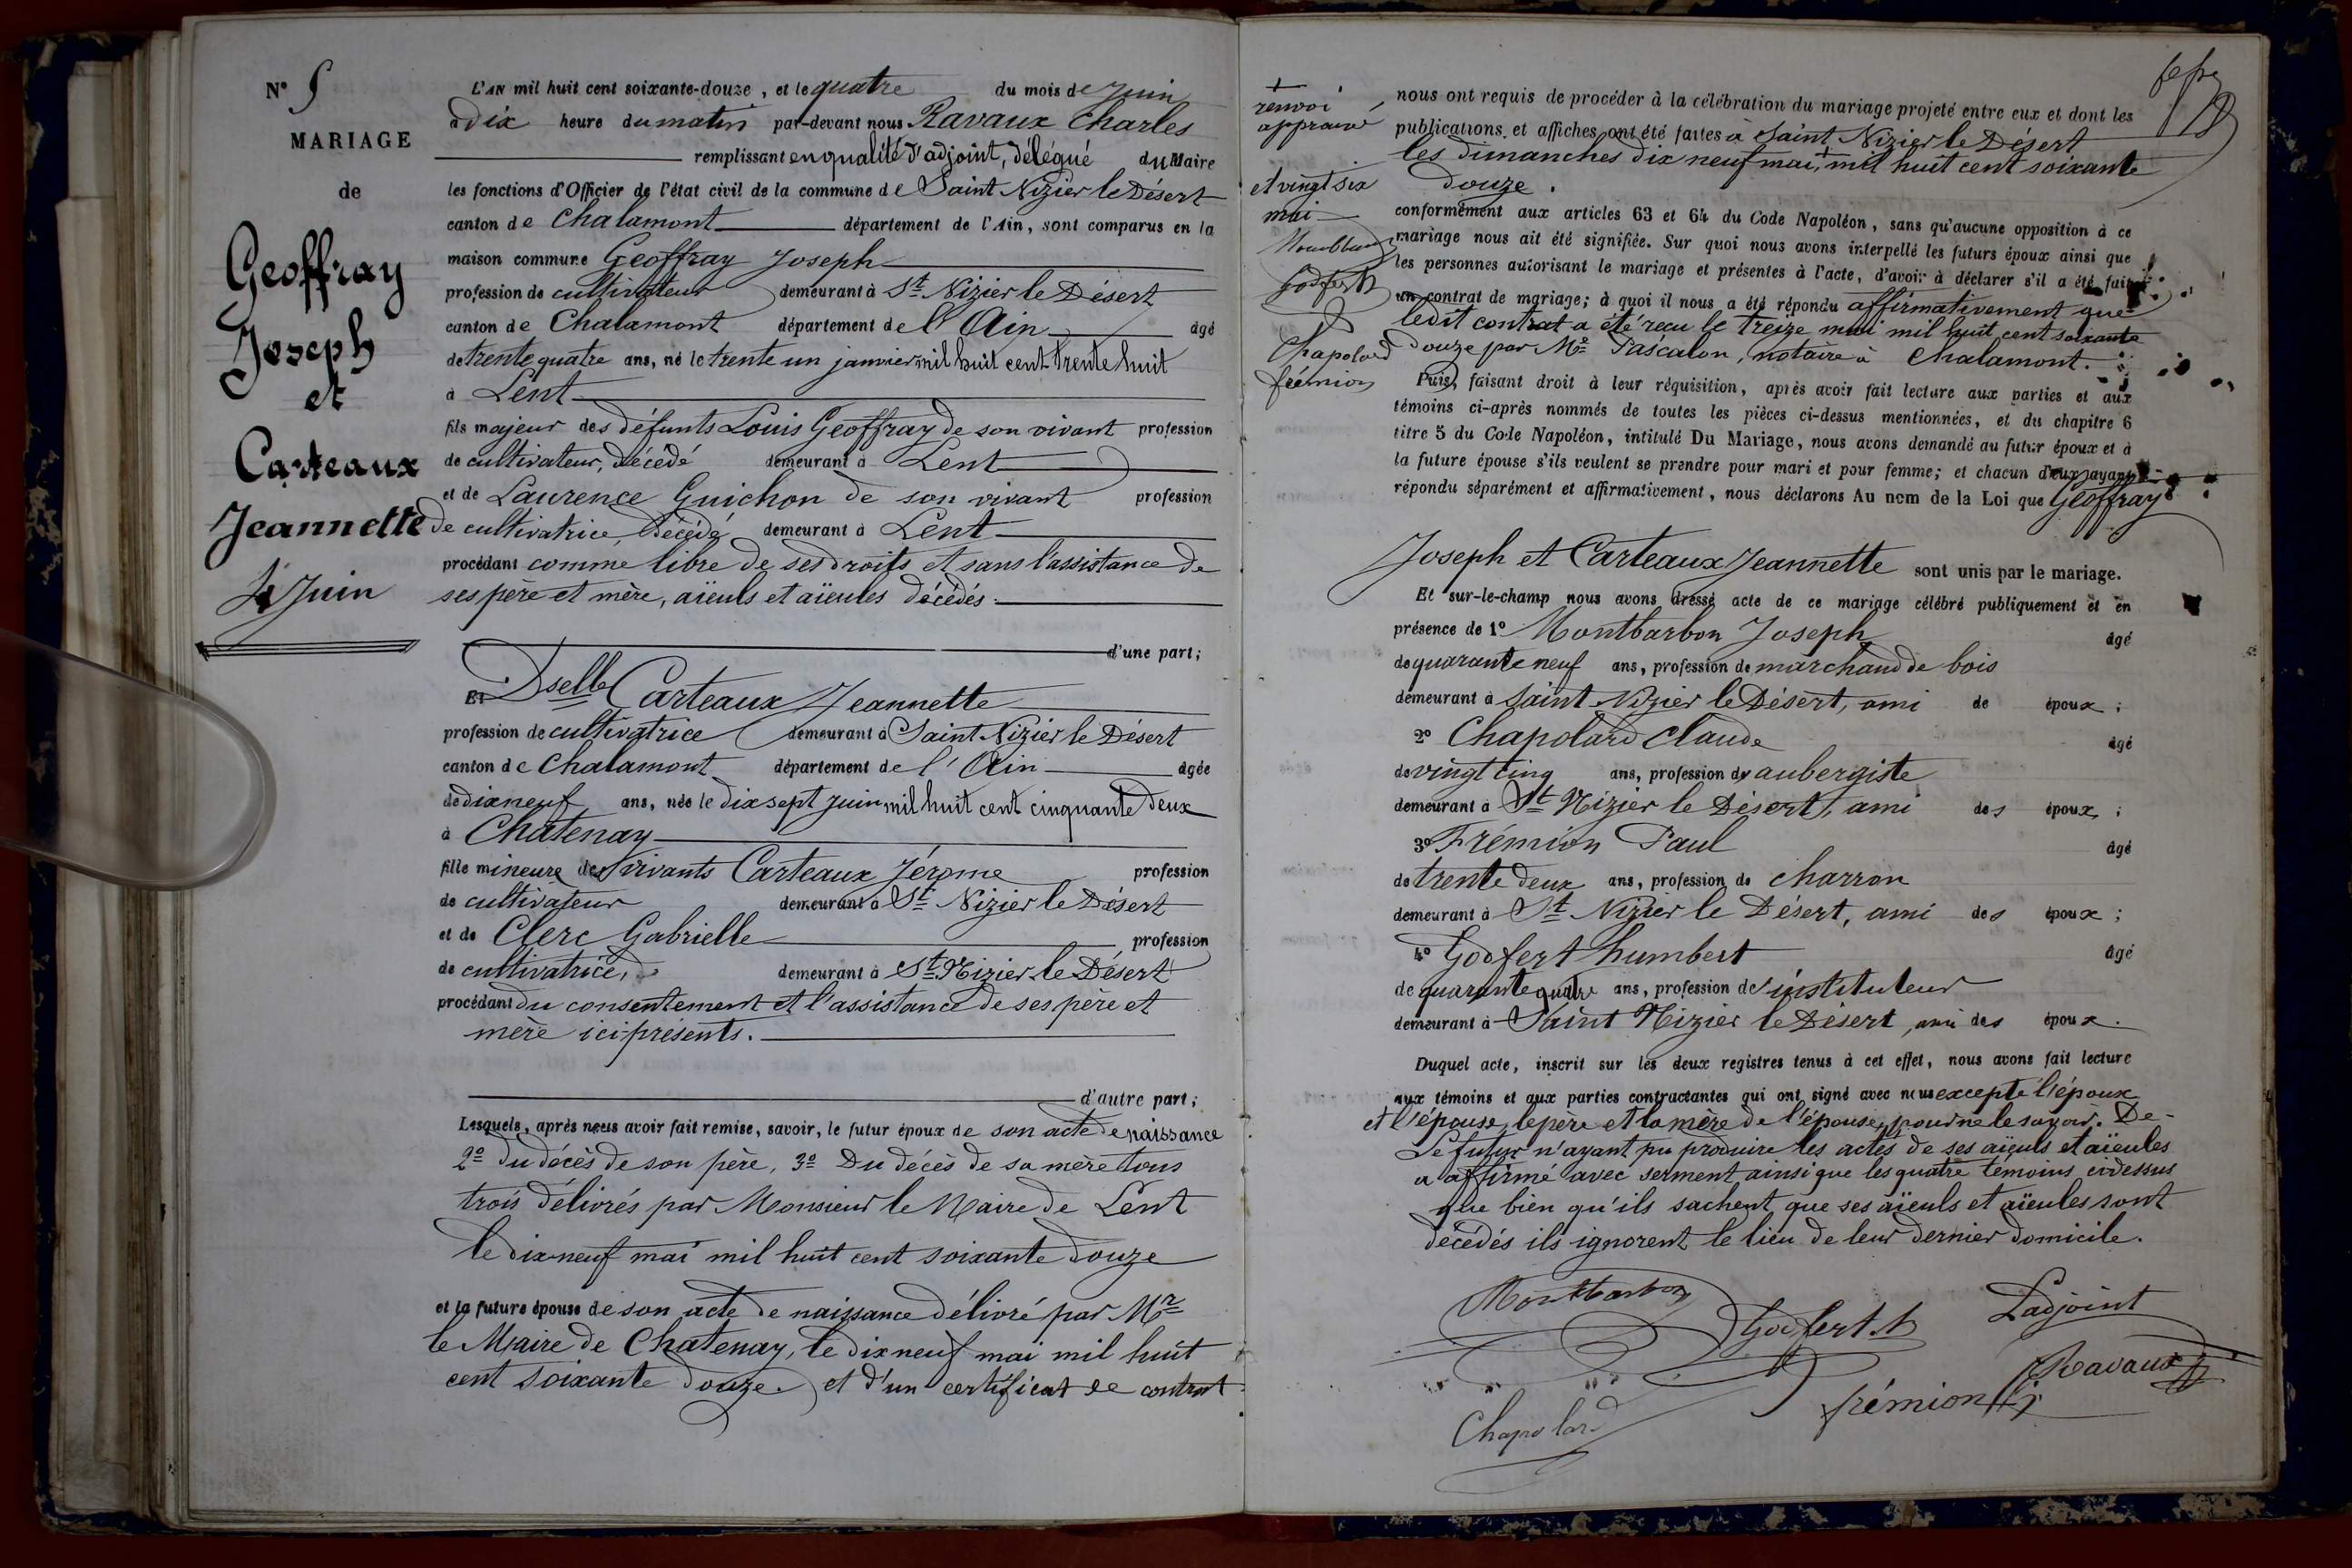 N° 5
MARIAGE
de
Geoffray
Joseph
et
Carteaux
Jeannette
4 Juin
L'AN mil huit cent soixante-douze, et le quatre du mois de Juin
à dix heure du matin par-devant nous Ravaux Charles
remplissant en qualité d'adjoint, délégué du Maire
les fonctions d'Officier de l'état civil de la commune de Saint Nizier le Désert
canton de Chalamont département de l'Ain, sont comparus en la
maison commune Geoffray Joseph
profession de cultivateur demeurant à St Nizier le Désert
canton de Chalamont département de l'Ain âgé
de trente quatre ans, né le trente un janvier mil huit cent trente huit
à Lent
fils majeur des défunts Louis Geoffray de son vivant profession
de cultivateur, décédé demeurant à Lent
et de Laurence Guichon de son vivant profession
de cultivatrice, décédé demeurant à Lent
procédant comme libre de ses droits et sans l'assistance de
ses père et mère, aïeuls et aïeules décédés.
d'une part;
Et Dselle Carteaux Jeannette
profession de cultivatrice demeurant à Saint Nizier le Désert
canton de Chalamont département de l'Ain âgée
de dix neuf ans, née le dix sept juin mil huit cent cinquante deux
à Chatenay
fille mineure des vivants Carteaux Jérome profession
de cultivateur demeurant à St Nizier le Désert
et de Clerc Gabrielle profession
de cultivatrice, demeurant à St Nizier le Désert
procédant du consentement et l'assistance de ses père et
mère ici présents.
d'autre part;
Lesquels, après nous avoir fait remise, savoir, le futur époux de son acte de naissance
2° du décès de son père, 3° Du décès de sa mère tous
trois délivrés par Monsieur le Maire de Lent
le dix neuf mai mil huit cent soixante douze
et la future épouse de son acte de naissance délivré par Mr
le Maire de Chatenay, le dix neuf mai mil huit
cent soixante douze. et d'un certificat de contrat
+
renvoi
approuvé
et vingt six
mai
Godfert h
Chapolard
frémion
nous ont requis de procéder à la célébration du mariage projeté entre eux et dont les
publications et affiches ont été faites à Saint Nizier le Désert
les dimanches dix neuf mai, + mil huit cent soixante
douze.
conformément aux articles 63 et 64 du Code Napoléon, sans qu'aucune opposition à ce
mariage nous ait été signifiée. Sur quoi nous avons interpellé les futurs époux ainsi que
les personnes autorisant le mariage et présentes à l'acte, d'avoir à déclarer s'il a été fait
un contrat de mariage; à quoi il nous a été répondu affirmativement que
ledit contrat a été reçu le treize mai mil huit cent soixante
douze par Me Pascalon, notaire à Chalamont.
Puis, faisant droit à leur réquisition, après avoir fait lecture aux parties et aux
témoins ci-après nommés de toutes les pièces ci-dessus mentionnées, et du chapitre 6
titre 5 du Code Napoléon, intitulé Du Mariage, nous avons demandé au futur époux et à
la future épouse s'ils veulent se prendre pour mari et pour femme; et chacun d'eux ayant
répondu séparément et affirmativement, nous déclarons Au nom de la Loi que Geoffray
Joseph et Carteaux Jeannette sont unis par le mariage.
Et sur-le-champ nous avons dressé acte de ce mariage célébré publiquement et en
présence de 1° Montbarbon Joseph âgé
de quarante neuf ans, profession de marchand de bois
demeurant à Saint Nizier le Désert, ami de époux;
2° Chapolard Claude âgé
de vingt cinq ans, profession de aubergiste
demeurant à St Nizier le Désert, ami des époux;
3° Frémion Paul âgé
de trente deux ans, profession de charron
demeurant à St Nizier le Désert, ami des époux;
4° Godfert humbert âgé
de quarante quatre ans, profession de instituteur
demeurant à Saint Nizier le Désert, ami des époux.
Duquel acte, inscrit sur les deux registres tenus à cet effet, nous avons fait lecture
aux témoins et aux parties contractantes qui ont signé avec nous excepté l'époux
et l'épouse, le père et la mère de l'épouse, pour ne le savoir. De-
Le futur n'ayant pu produire les actes de ses aïeuls et aïeules
a affirmé avec serment, ainsi que les quatre témoins cidessus
que bien qu'ils sachent que ses aïeuls et aïeules sont
décédés ils ignorent le lieu de leur dernier domicile.
Montbarbon
Godfert. h
L'adjoint
Ravaux
frémion
Chapolard